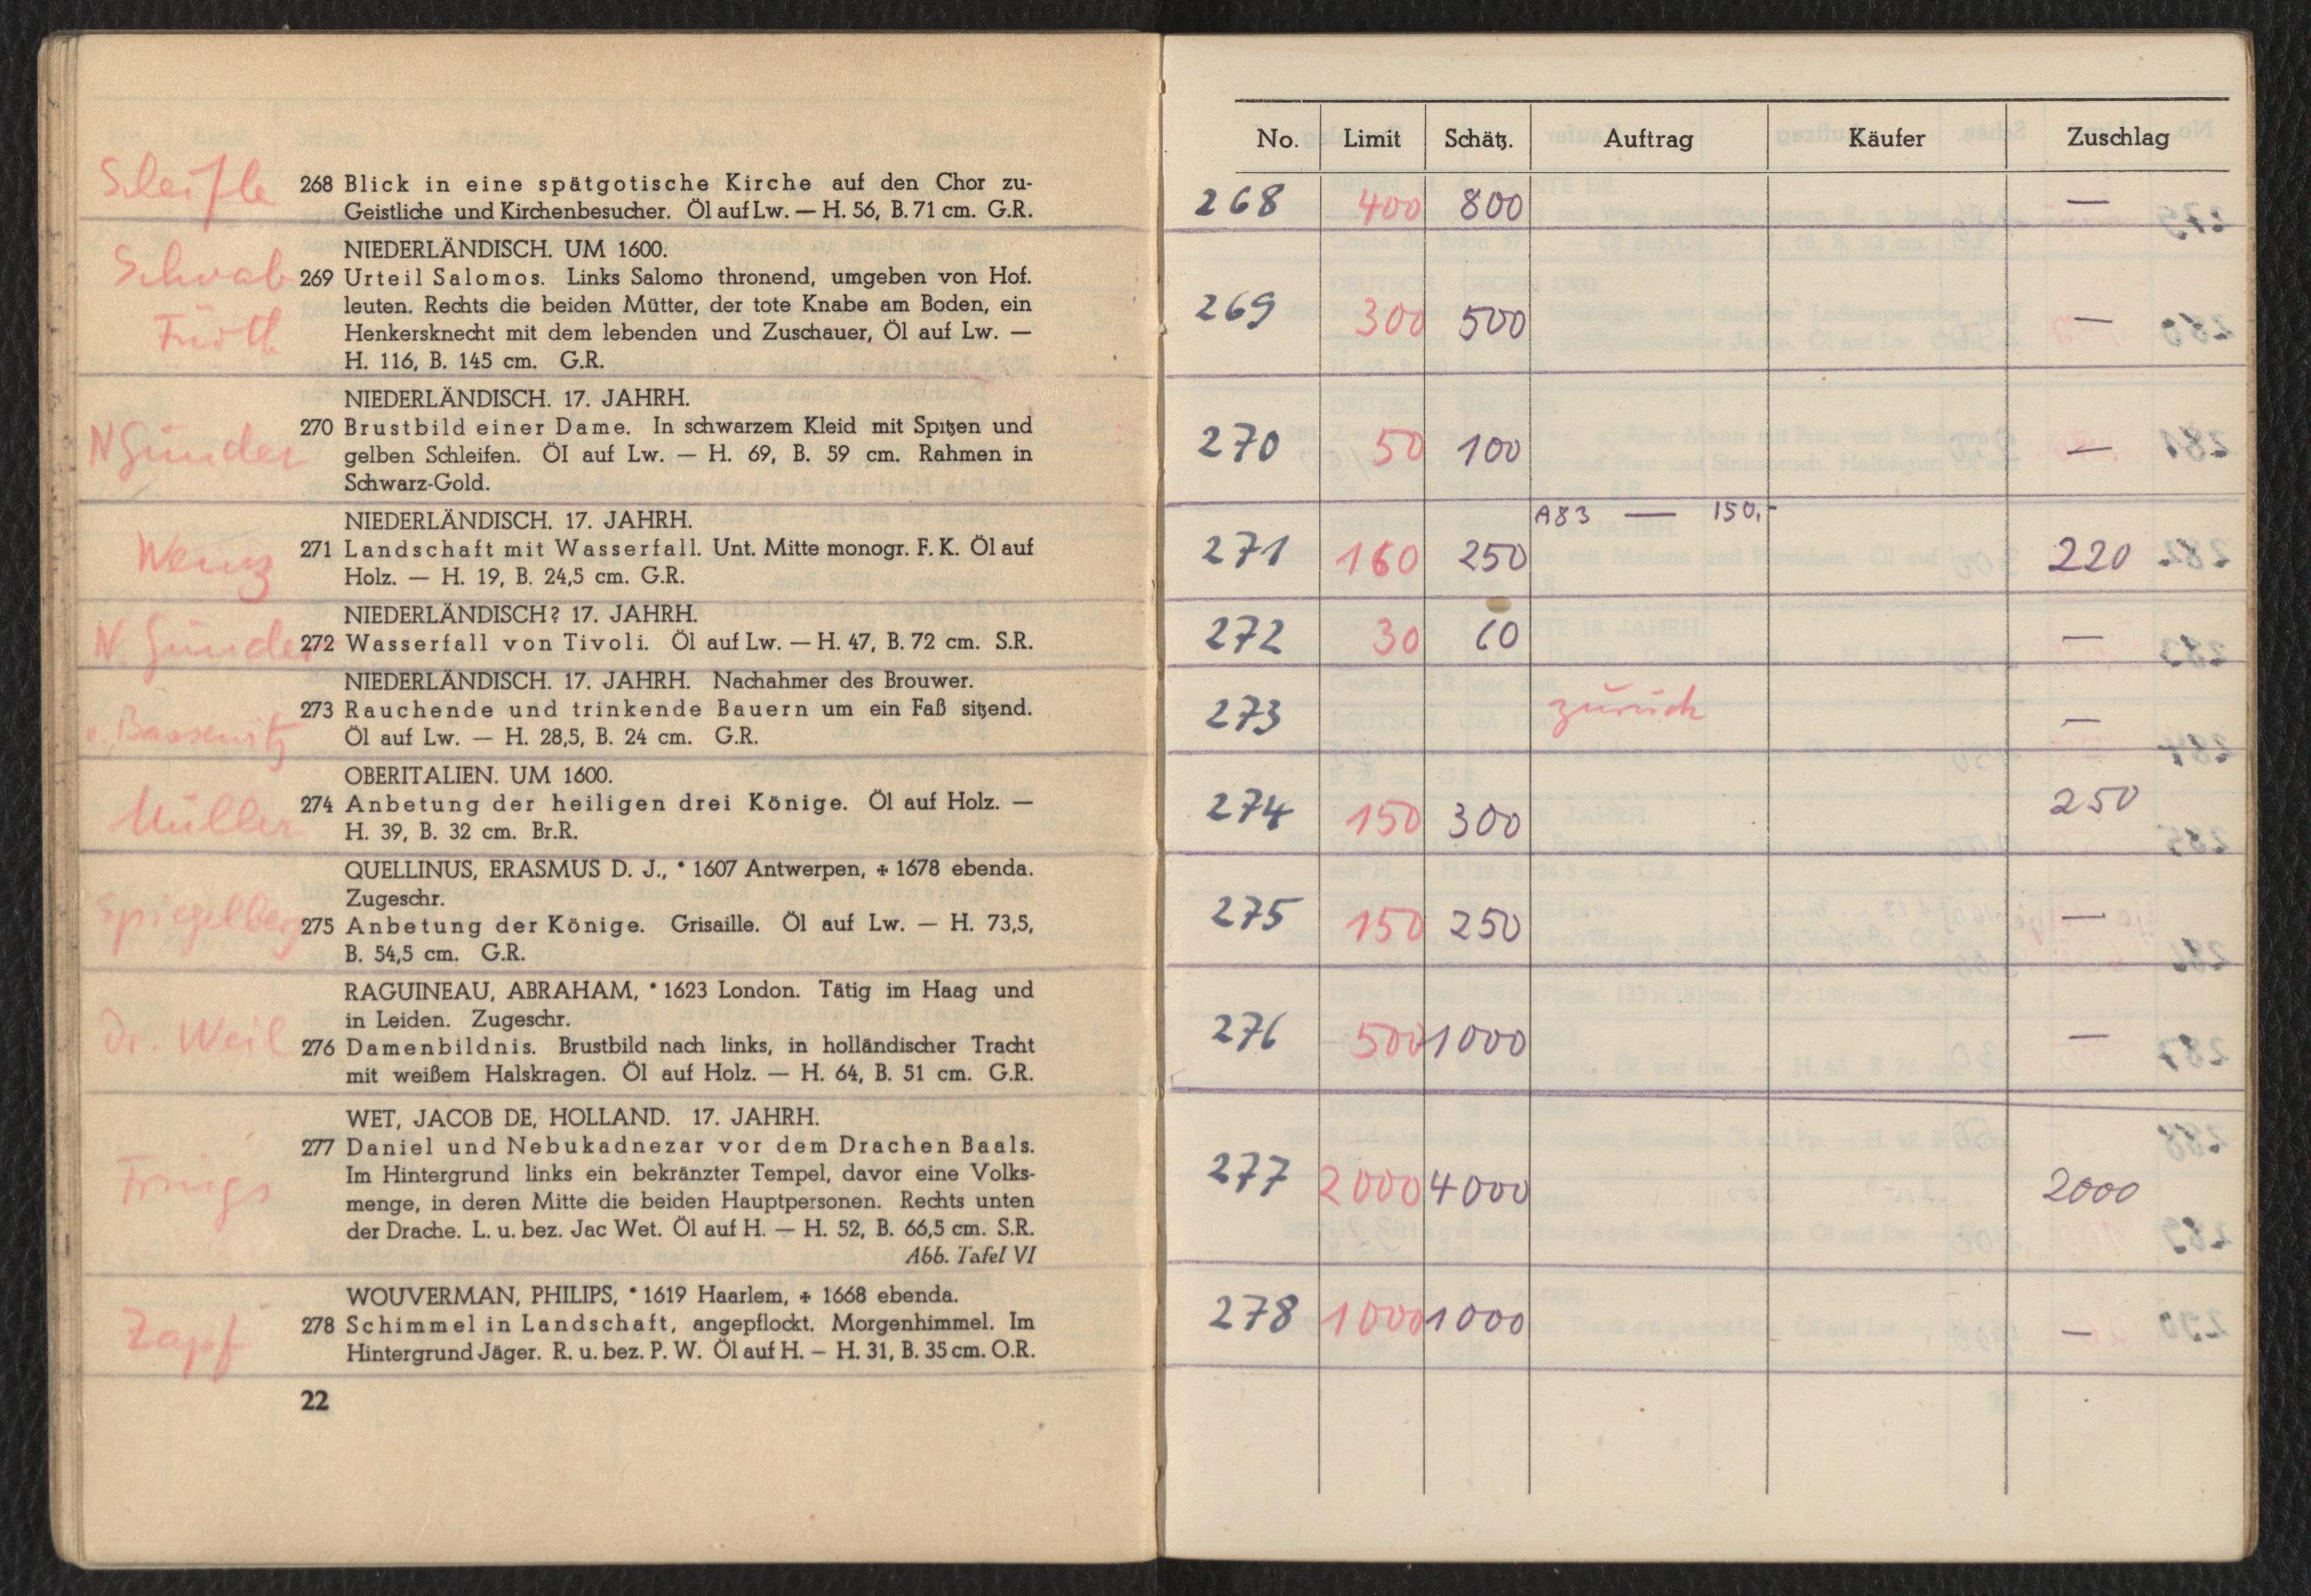 Schwab
Fürth
N Günder
Wenz
N. Günder
v. Bassewitz
Müller
Spiegelberg
Dr. Weil
Frings
Zapf
268 Blick in eine spätgotische Kirche auf den Chor zu-
Geistliche und Kirchenbesucher. Öl auf Lw. — H. 56, B. 71 cm. G.R.
NIEDERLÄNDISCH. UM 1600.
269 Urteil Salomos. Links Salomo thronend, umgeben von Hof.
leuten. Rechts die beiden Mütter, der tote Knabe am Boden, ein
Henkersknecht mit dem lebenden und Zuschauer, Öl auf Lw. —
H. 116, B. 145 cm. G.R.
NIEDERLÄNDISCH. 17. JAHRH.
270 Brustbild einer Dame. In schwarzem Kleid mit Spitzen und
gelben Schleifen. Öl auf Lw. — H. 69, B. 59 cm. Rahmen in
Schwarz-Gold.
NIEDERLÄNDISCH. 17. JAHRH.
271 Landschaft mit Wasserfall. Unt. Mitte monogr. F. K. Öl auf
Holz. — H. 19, B. 24,5 cm. G.R.
NIEDERLÄNDISCH? 17. JAHRH.
272 Wasserfall von Tivoli. Öl auf Lw. — H. 47, B. 72 cm. S.R.
NIEDERLÄNDISCH. 17. JAHRH. Nachahmer des Brouwer.
273 Rauchende und trinkende Bauern um ein Faß sitzend.
Öl auf Lw. — H. 28,5, B. 24 cm. G.R.
OBERITALIEN. UM 1600.
274 Anbetung der heiligen drei Könige. Öl auf Holz. —
H. 39, B. 32 cm. Br.R.
QUELLINUS, ERASMUS D. J., * 1607 Antwerpen, ✠ 1678 ebenda.
Zugeschr.
275 Anbetung der Könige. Grisaille. Öl auf Lw. — H. 73,5,
B. 54,5 cm. G.R.
RAGUINEAU, ABRAHAM, * 1623 London. Tätig im Haag und
in Leiden. Zugeschr.
276 Damenbildnis. Brustbild nach links, in holländischer Tracht
mit weißem Halskragen. Öl auf Holz. — H. 64, B. 51 cm. G.R.
WET, JACOB DE, HOLLAND. 17. JAHRH.
277 Daniel und Nebukadnezar vor dem Drachen Baals.
Im Hintergrund links ein bekränzter Tempel, davor eine Volks-
menge, in deren Mitte die beiden Hauptpersonen. Rechts unten
der Drache. L. u. bez. Jac Wet. Öl auf H. — H. 52, B. 66,5 cm. S.R.
Abb. Tafel VI
WOUVERMAN, PHILIPS, * 1619 Haarlem, ✠ 1668 ebenda.
278 Schimmel in Landschaft, angepflockt. Morgenhimmel. Im
Hintergrund Jäger. R. u. bez. P. W. Öl auf H. — H. 31, B. 35 cm. O.R.
22
No. Limit Schätz. Auftrag Käufer Zuschlag
268 400 800 —
269 300 500 —
270 50 100 —
A83 — 150,-
271 160 250 220
272 30 60 —
273 zurück —
274 150 300 250
275 150 250 —
276 500 1000 —
277 2000 4000 2000
278 1000 1000 —